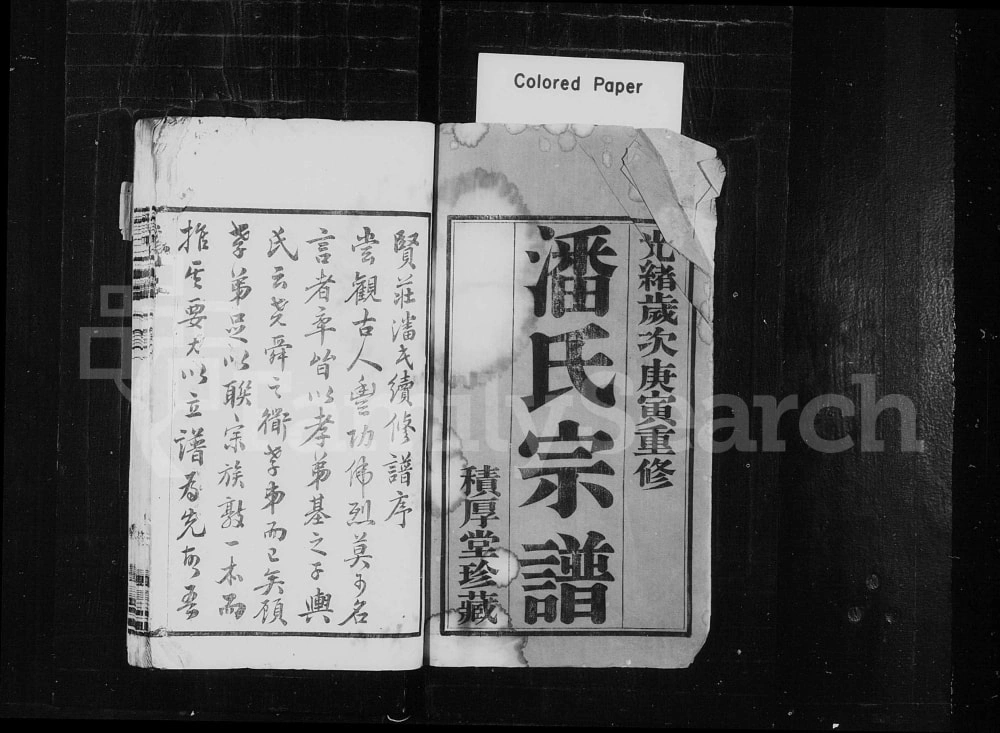 Colored Paper
光緒歲次庚寅重修
潘氏宗譜
積厚堂珍藏
賢莊潘氏續修譜序
嘗觀古人豐功偉烈莫可名
言者率皆以孝弟基之子輿
氏云堯舜之道孝弟而已矣顧
孝弟足以聯宗族敦一本而
推其要尤以立譜為先好吾
FamilySearch